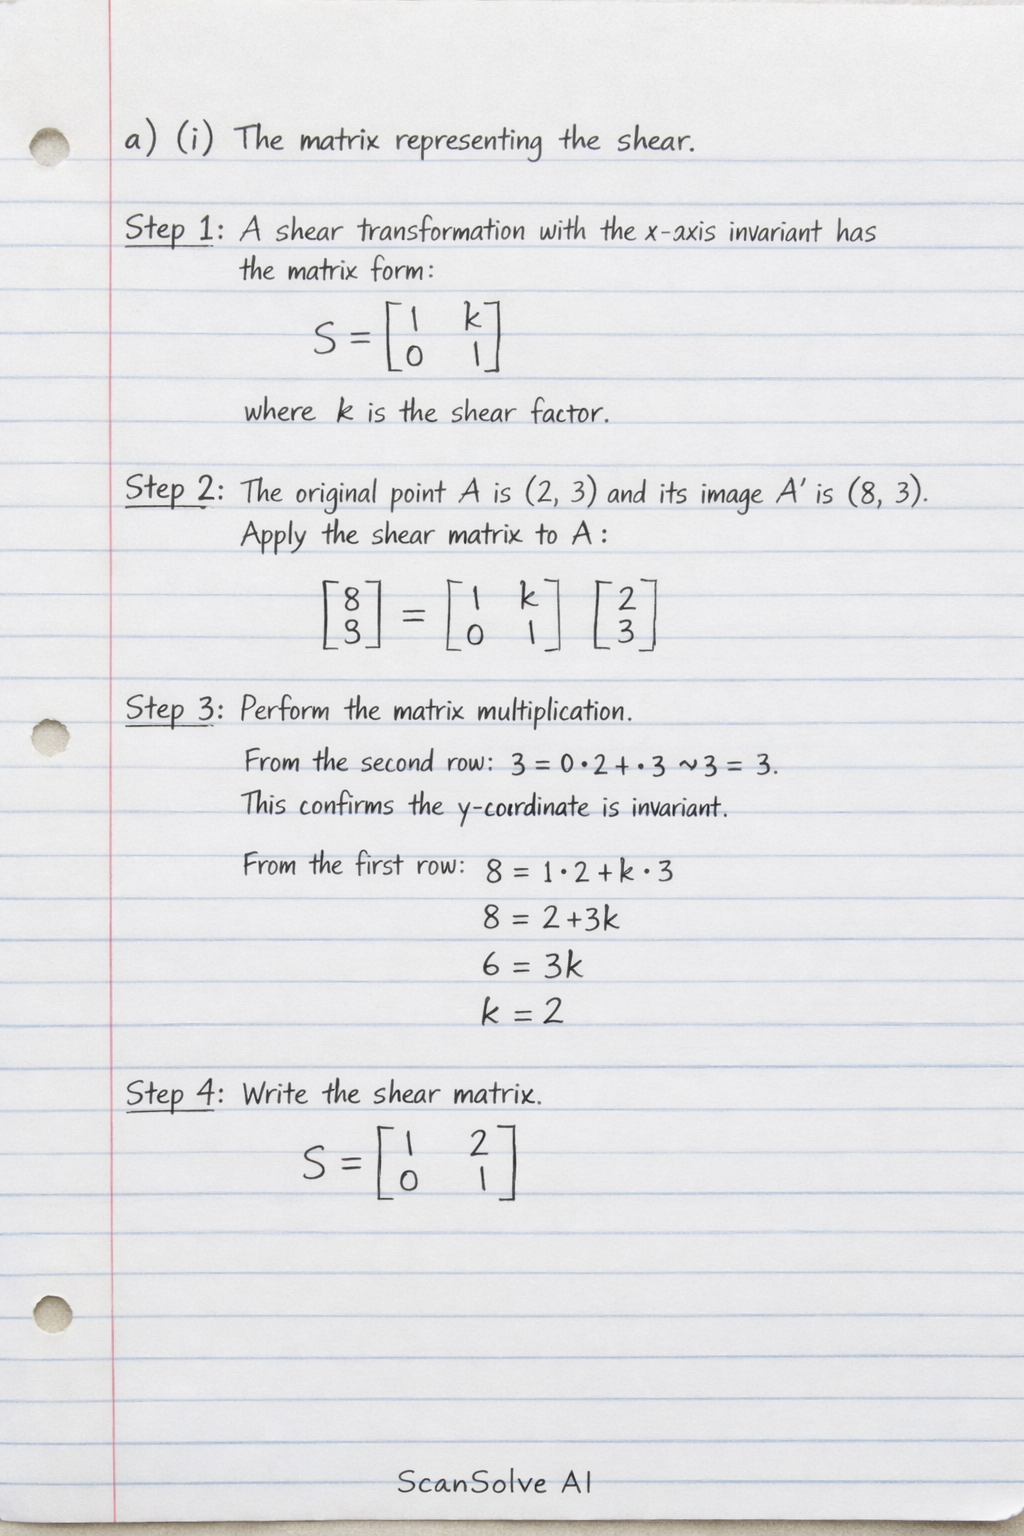 a) (i) The matrix representing the shear.
Step 1: A shear transformation with the x-axis invariant has
the matrix form:
S = [1 k
0 1]
where k is the shear factor.
Step 2: The original point A is (2, 3) and its image A' is (8, 3).
Apply the shear matrix to A:
[8 = [1 k [2
3] 0 1] 3]
Step 3: Perform the matrix multiplication.
From the second row: 3 = 0·2+·3 ~3 = 3.
This confirms the y-coordinate is invariant.
From the first row: 8 = 1·2+k·3
8 = 2+3k
6 = 3k
k = 2
Step 4: Write the shear matrix.
S = [1 2
0 1]
ScanSolve AI